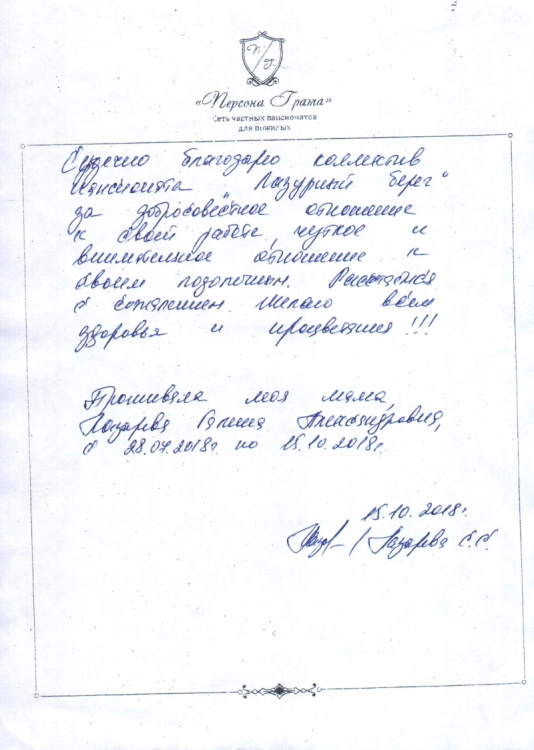 П/Г
«Персона Грата»
Сеть частных пансионатов
для пожилых
Сердечно благодарю коллектив
пансионата „Лазурный берег“
за добросовестное отношение
к своей работе, чуткое и
внимательное отношение к
своим подопечным. Расстаёмся
с сожалением. Желаю всем
здоровья и процветания!!!
Проживала моя мама,
Лазарева Галина Александровна,
с 28.07.2018г. по 15.10.2018г.
15.10.2018г.
/Лазарева С.С.